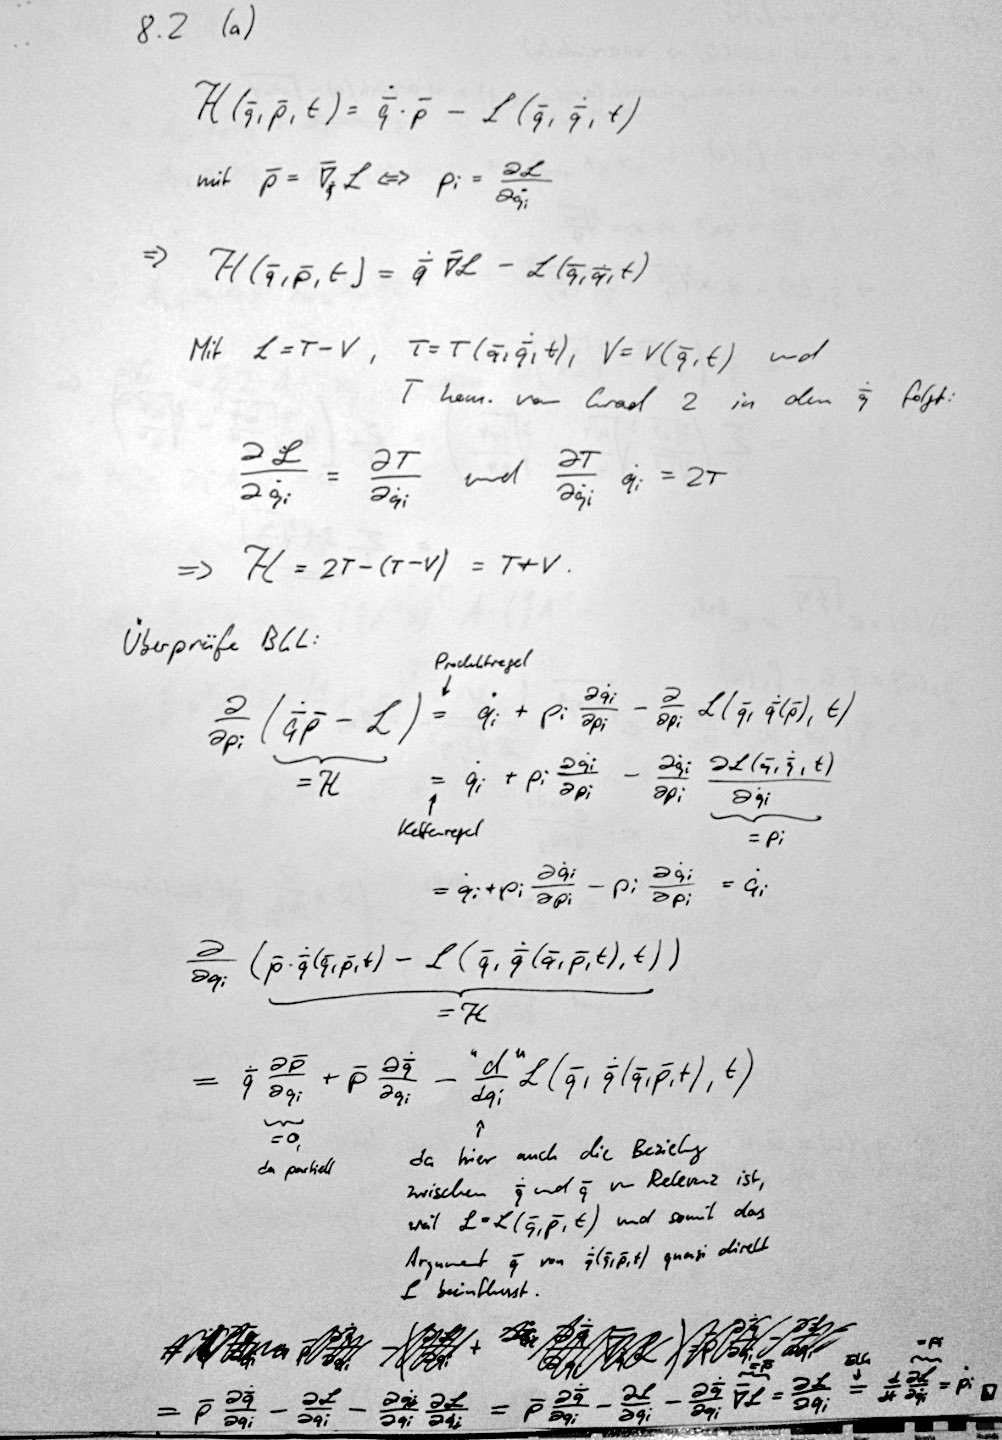 8.2 (a)
ℋ(q̄, p̄, t) = q̄̇ · p̄ − ℒ(q̄, q̄̇, t)
mit p̄ = ∇̄_q̇ ℒ ⇔ pᵢ = ∂ℒ/∂q̇ᵢ
⇒ ℋ(q̄, p̄, t) = q̄̇ ∇̄ℒ − ℒ(q̄, q̄̇, t)
Mit ℒ = T − V, T = T(q̄, q̄̇, t), V = V(q̄, t) und
T hom. von Grad 2 in den q̄̇ folgt:
∂ℒ/∂q̇ᵢ = ∂T/∂q̇ᵢ und ∂T/∂q̇ᵢ q̇ᵢ = 2T
⇒ ℋ = 2T − (T − V) = T + V.
Überprüfe BGL:
Produktregel
↓
∂/∂pᵢ (q̄̇ p̄ − ℒ) = q̇ᵢ + pᵢ ∂q̇ᵢ/∂pᵢ − ∂/∂pᵢ ℒ(q̄, q̄̇(p̄), t)
= ℋ
= q̇ᵢ + pᵢ ∂q̇ᵢ/∂pᵢ − ∂q̇ᵢ/∂pᵢ ∂ℒ(q̄, q̄̇, t)/∂q̇ᵢ
↑
Kettenregel
= pᵢ
= q̇ᵢ + pᵢ ∂q̇ᵢ/∂pᵢ − pᵢ ∂q̇ᵢ/∂pᵢ = q̇ᵢ
∂/∂qᵢ (p̄ · q̄̇(q̄, p̄, t) − ℒ(q̄, q̄̇(q̄, p̄, t), t))
= ℋ
= q̄̇ ∂p̄/∂qᵢ + p̄ ∂q̄̇/∂qᵢ − "d"/dqᵢ ℒ(q̄, q̄̇(q̄, p̄, t), t)
= 0,
da partiell
↑
da hier auch die Beziehg
zwischen q̄̇ und q̄ von Relevanz ist,
weil ℒ = ℒ(q̄, p̄, t) und somit das
Argument q̄ von q̄̇(q̄, p̄, t) quasi direkt
ℒ beeinflusst.
= p̄ ∂q̄̇/∂qᵢ − ∂ℒ/∂qᵢ − ∂q̇ᵢ/∂qᵢ ∂ℒ/∂q̇ᵢ = p̄ ∂q̄̇/∂qᵢ − ∂ℒ/∂qᵢ − ∂q̄̇/∂qᵢ ∇̄ℒ = ∂ℒ/∂qᵢ = d/dt ∂ℒ/∂q̇ᵢ = ṗᵢ □